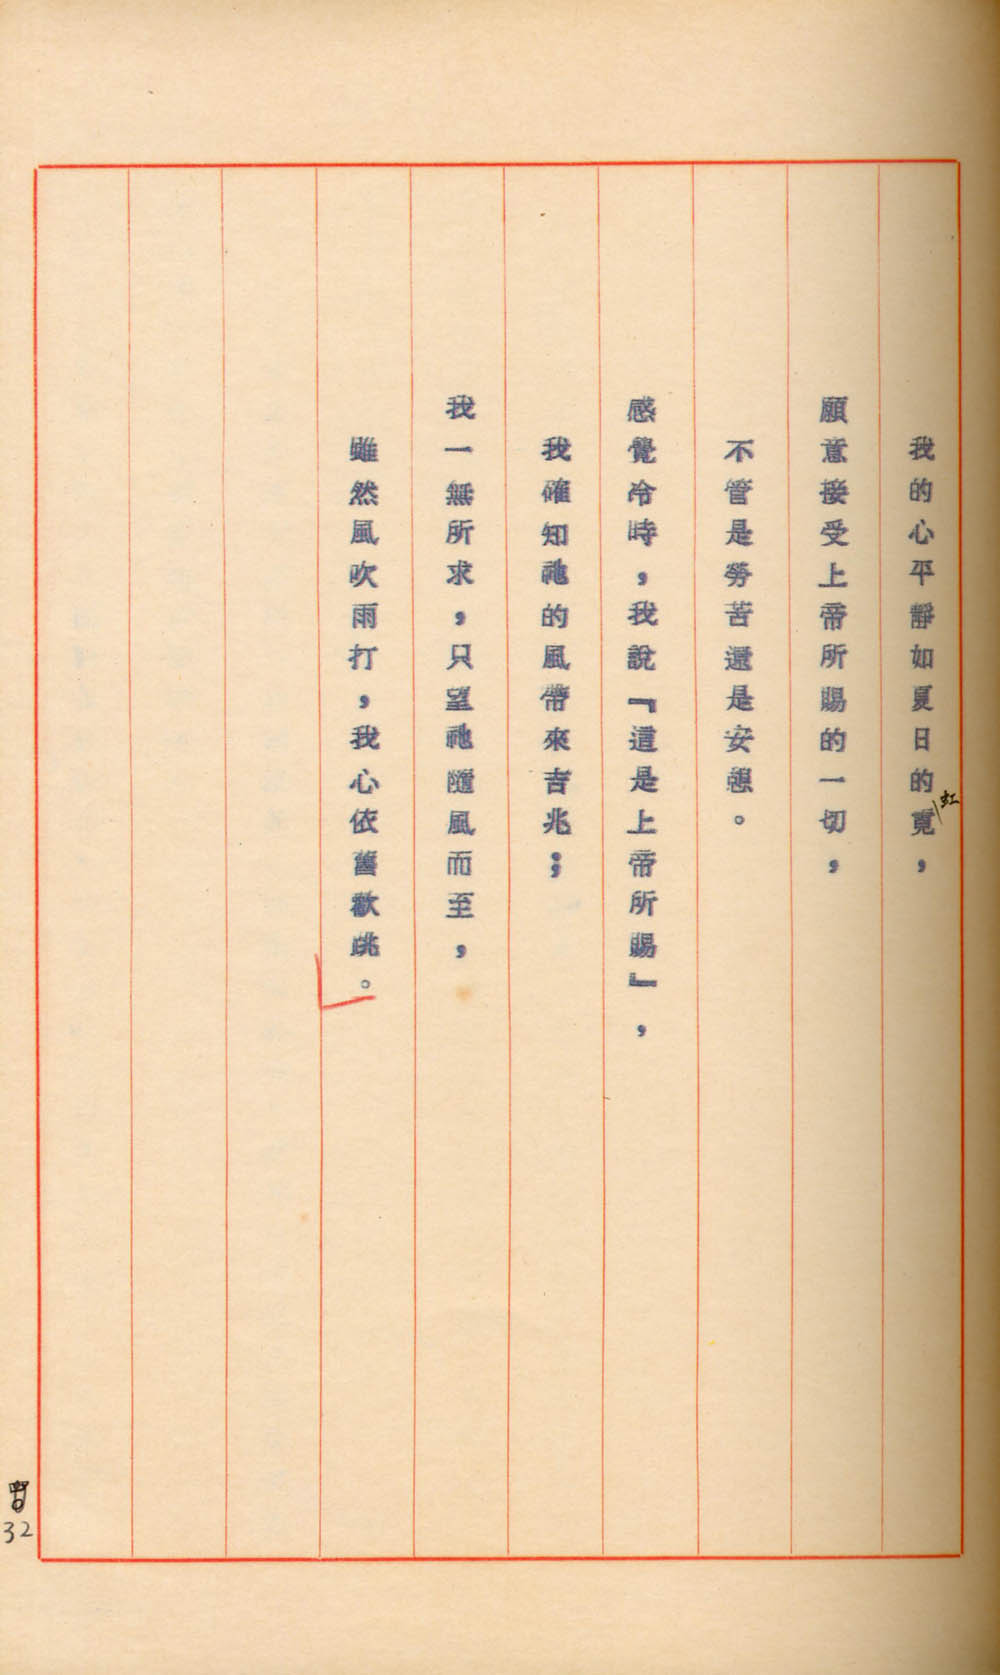 我的心平靜如夏日的霓，
虹
願意接受上帝所賜的一切，
不管是勞苦還是安憩。
感覺冷時，我說『這是上帝所賜』，
我確知祂的風帶來吉兆；
我一無所求，只望祂隨風而至，
雖然風吹雨打，我心依舊歡跳。
32